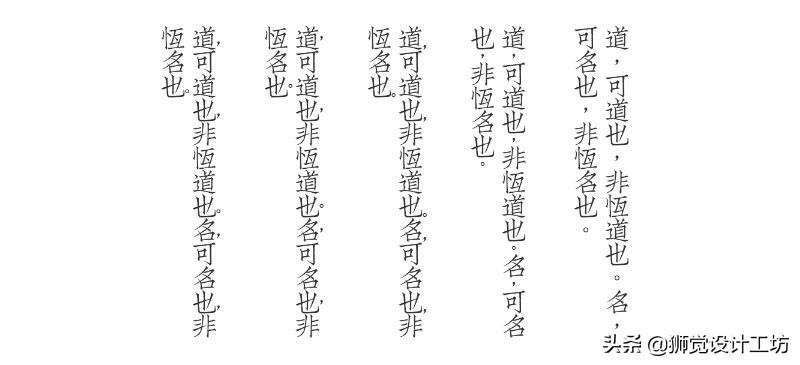 道，可道也，非恆道也。名，
可名也，非恆名也。
道，可道也，非恆道也。名，可名
也，非恆名也。
道，可道也，非恆道也。名，可名也，非
恆名也。
道，可道也，非恆道也。名，可名也，非
恆名也。
道，可道也，非恆道也。名，可名也，非
恆名也。
头条 @狮觉设计工坊